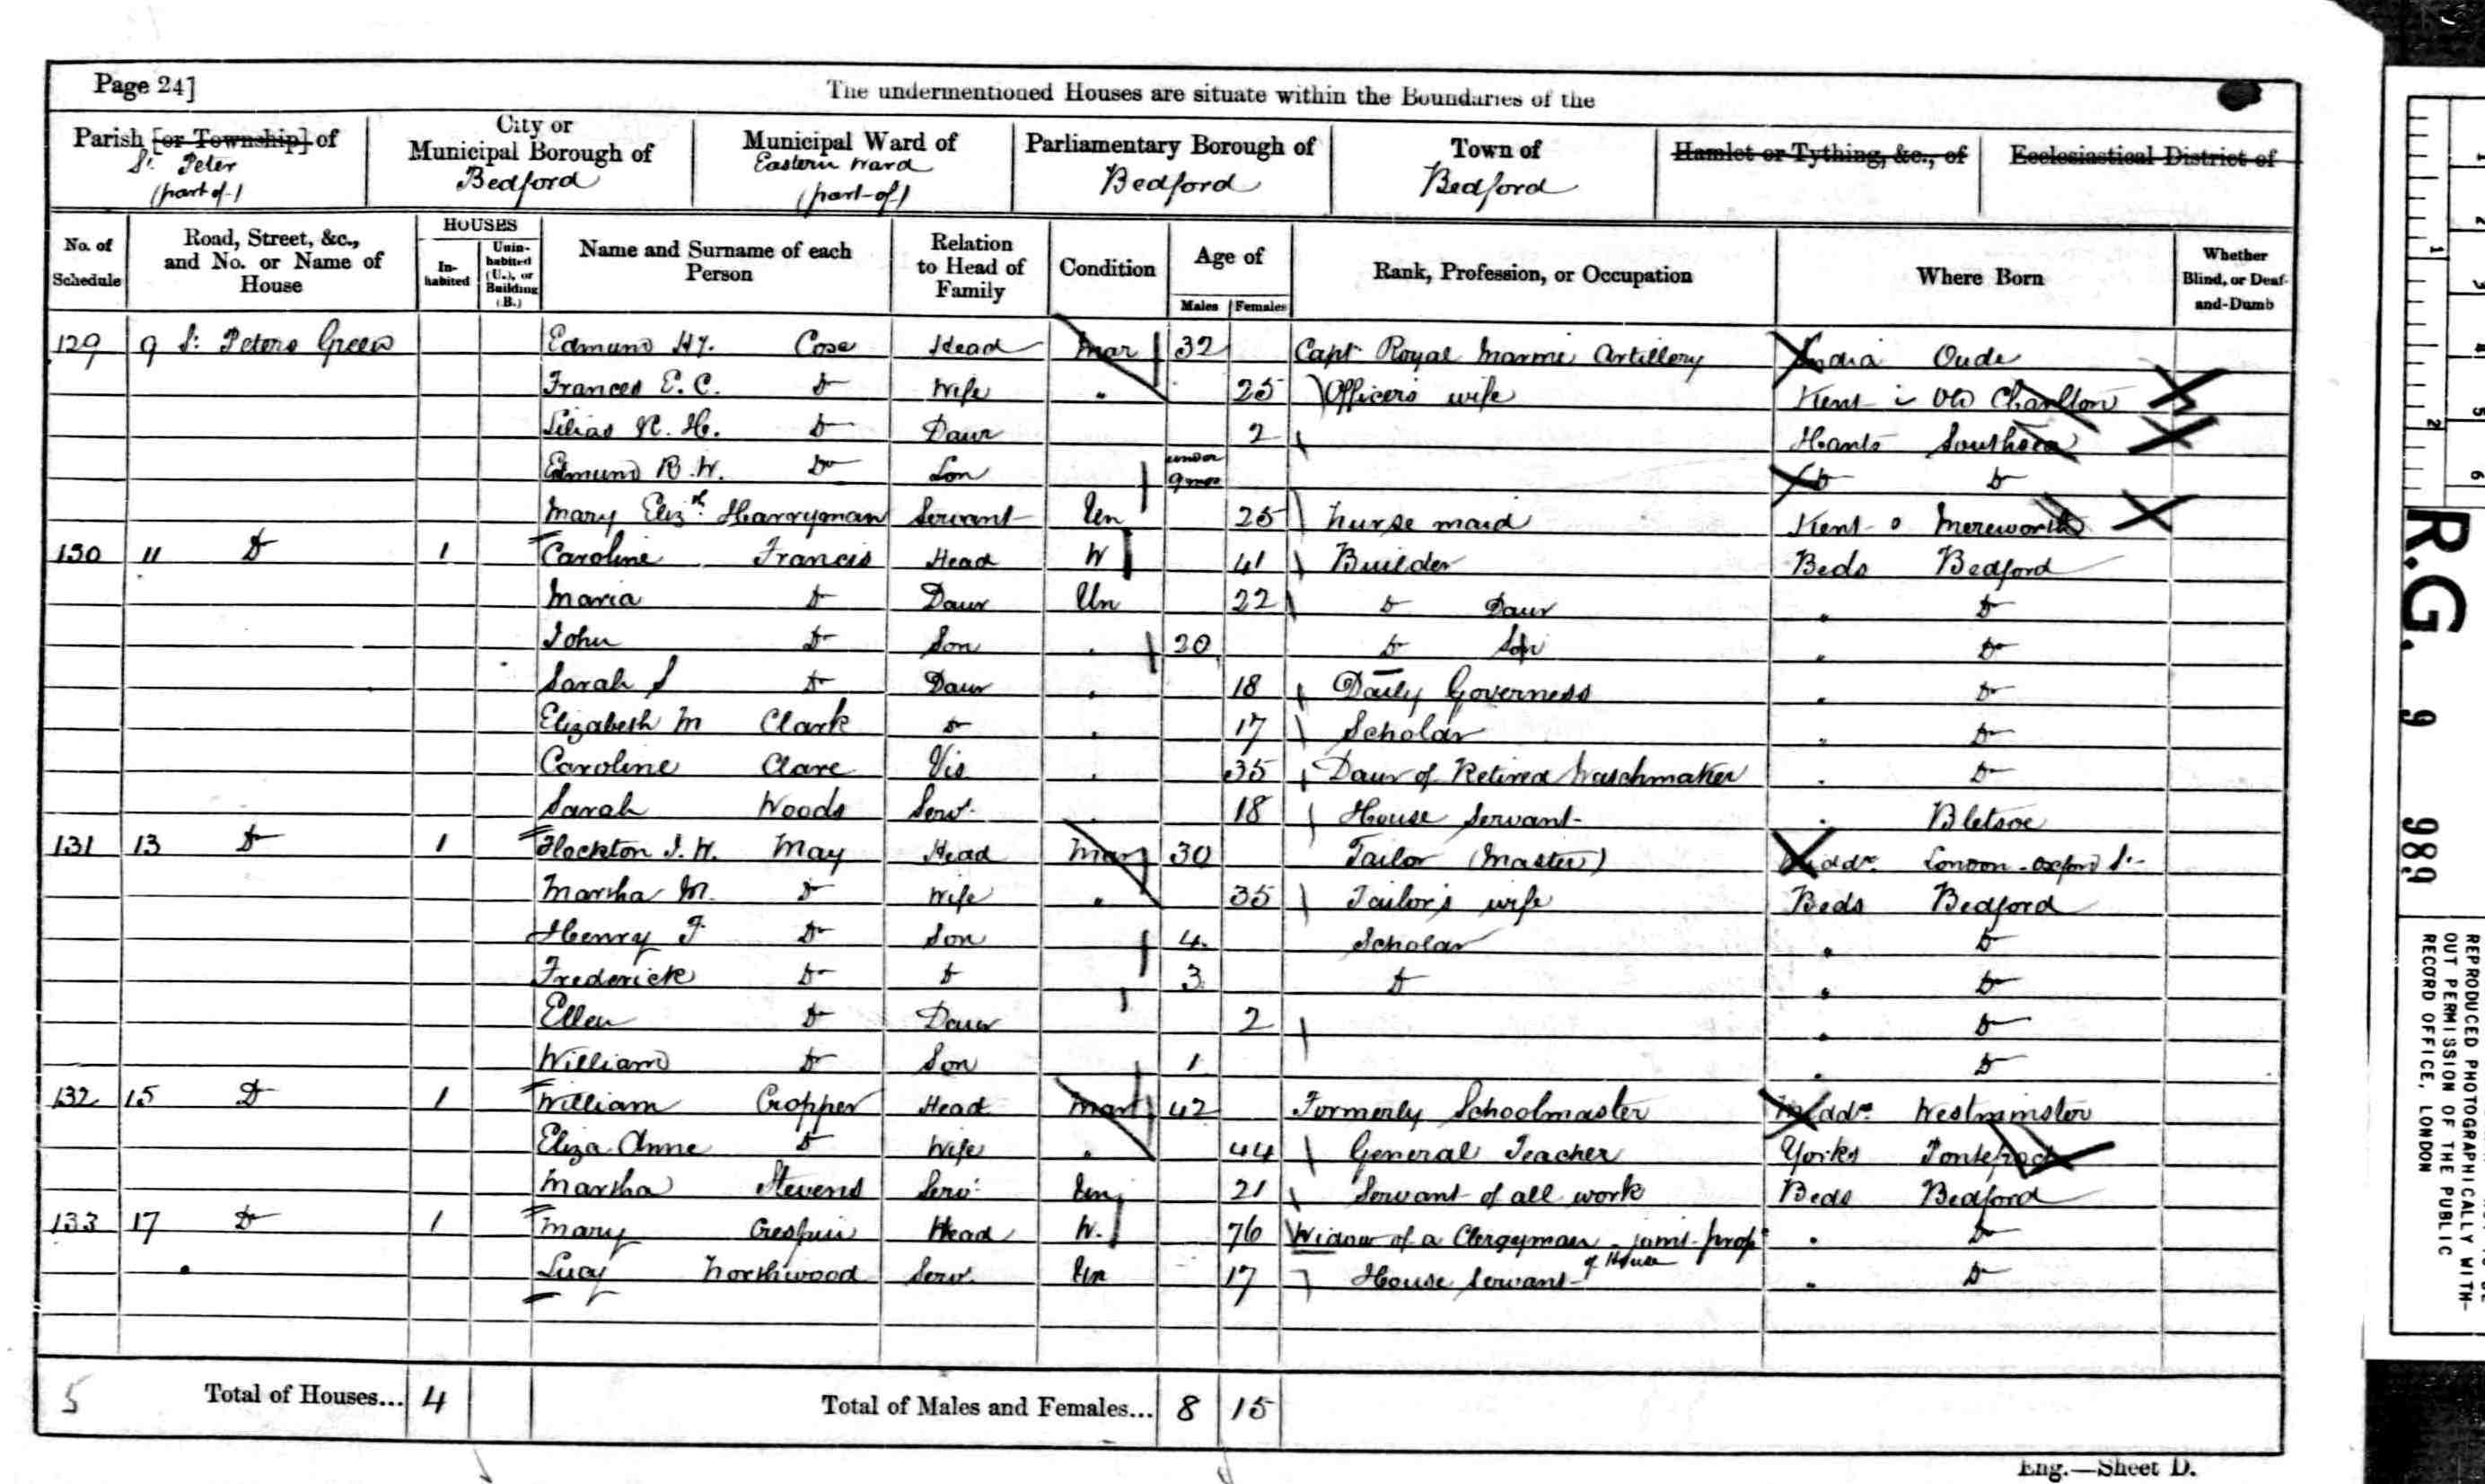 Page 24]
The undermentioned Houses are situate within the Boundaries of the
Parish [or Township] of St. Peter (part of)
City or Municipal Borough of Bedford
Municipal Ward of Eastern Ward (part of)
Parliamentary Borough of Bedford
Town of Bedford
Hamlet or Tything, &c., of
Ecclesiastical District of
No. of Schedule
Road, Street, &c., and No. or Name of House
HOUSES
Inhabited
Uninhabited (U.), or Building (B.)
Name and Surname of each Person
Relation to Head of Family
Condition
Age of
Males Females
Rank, Profession, or Occupation
Where Born
Whether Blind, or Deaf-and-Dumb
129 9 St. Peters Green Edmund Hy. Head Mar 32 Capt Royal Marine Artillery India Oude
Frances E. C. Do Wife " 25 Officer's wife Kent Old Charlton
Lilias R. H. Do Daur 2 Hants Southsea
Edmund R. W. Do Son under 9 mos Do Do
Mary Elizth. Harryman Servant Un 25 Nurse maid Kent Mereworth
130 11 Do 1 Caroline Francis Head W 41 Builder Beds Bedford
Maria Do Daur Un 22 Do Daur " Do
John Do Son " 20 Do Son " Do
Sarah S Do Daur " 18 Daily Governess " Do
Elizabeth M Clark Do " 17 Scholar " Do
Caroline Clare Vis " 35 Daur of Retired Watchmaker " Do
Sarah Woods Serv. " 18 House Servant " Bletsoe
131 13 Do 1 Flockton J. W. May Head Mar 30 Tailor (Master) Middx. London Oxford St.
Martha M. Do Wife " 35 Tailor's wife Beds Bedford
Henry F. Do Son 4 Scholar " Do
Frederick Do Do 3 Do " Do
Ellen Do Daur 2 " Do
William Do Son 1 " Do
132 15 Do 1 William Cropper Head Mar 42 Formerly Schoolmaster Middx. Westminster
Eliza Anne Do Wife " 44 General Teacher Yorks Pontefract
Martha Stevens Serv. Un 21 Servant of all work Beds Bedford
133 17 Do 1 Mary Crespin Head W. 76 Widow of a Clergyman joint prop. of House " Do
Lucy Northwood Serv. Un 17 House Servant " Do
5 Total of Houses... 4 Total of Males and Females... 8 15
Eng.—Sheet D.
R.G. 9 989
REPRODUCED PHOTOGRAPHICALLY WITH-
OUT PERMISSION OF THE PUBLIC
RECORD OFFICE, LONDON